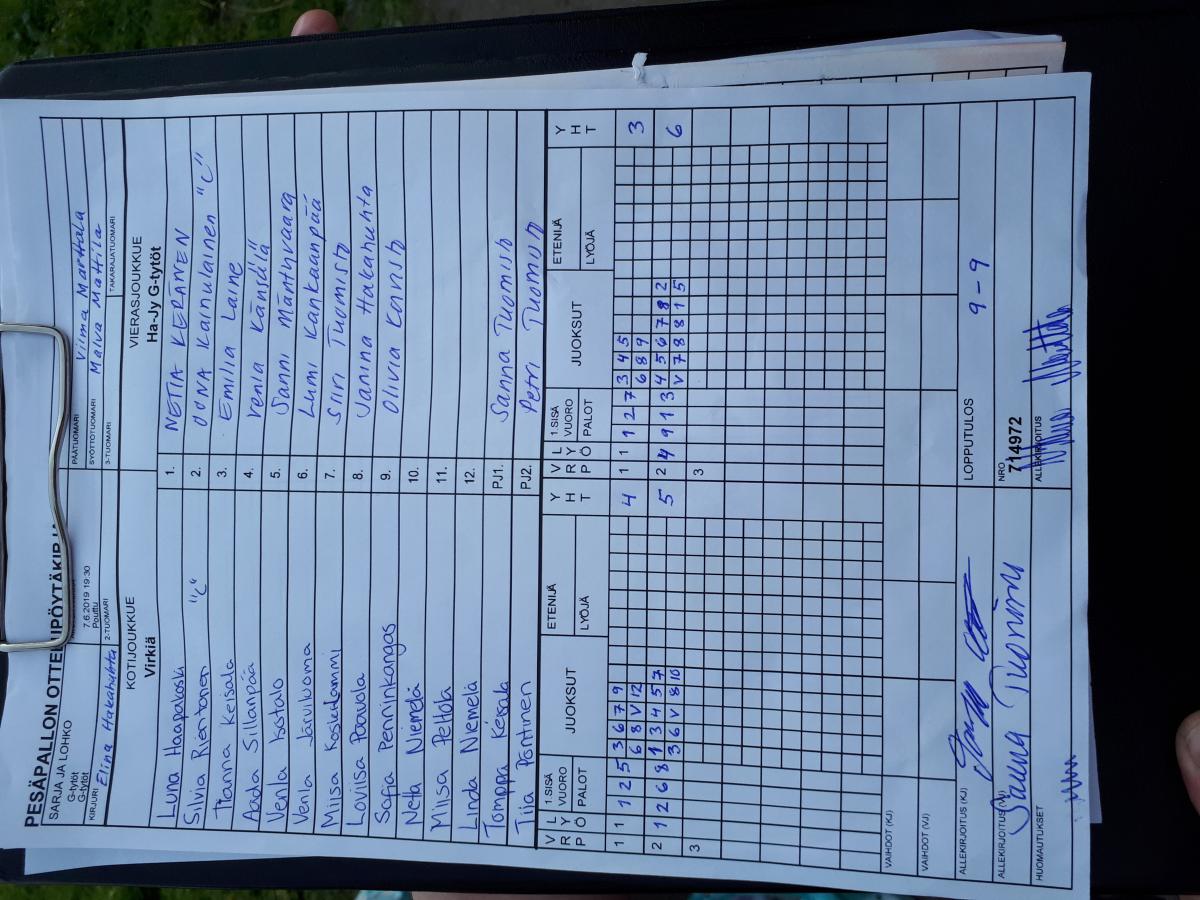 PESÄPALLON OTTELUPÖYTÄKIRJA
SARJA JA LOHKO
G-tytöt
G-tytöt
7.6.2019 19:30
Pouttu
KIRJURI Elina Hakahuhta
2-TUOMARI
PÄÄTUOMARI Viima Marttala
SYÖTTÖTUOMARI Maiva Mattila
3-TUOMARI
TAKARAJATUOMARI
KOTIJOUKKUE VIERASJOUKKUE
Virkiä Ha-Jy G-tytöt
Luna Haapakoski 1. NETTA KERÄNEN
Silvia Rientonen "C" 2. OONA Kainulainen "C"
Pianna Keisala 3. Emilia Laine
Aada Sillanpää 4. Venla Känsälä
Venla Isotalo 5. Sanni Mäntyvaara
Venla Järviluoma 6. Lumi Kankaanpää
Miisa Koskelammi 7. Siiri Tuomisto
Loviisa Paavola 8. Janina Hakahuhta
Sofia Penninkangas 9. Olivia Kanisto
Neta Niemelä 10.
Miisa Peltola 11.
Linda Niemelä 12.
Tomppa Keisala PJ1. Sanna Tuomisto
Tiia Pöntinen PJ2. Petri Tuomisto
V R P L Y Ö 1.SISÄ VUORO PALOT JUOKSUT ETENIJÄ LYÖJÄ Y H T V R P L Y Ö 1.SISÄ VUORO PALOT JUOKSUT ETENIJÄ LYÖJÄ Y H T
1 1 1 2 5 3 6 7 9 4 1 1 1 2 7 3 4 5 3
6 8 V 12 6 8 9
2 1 2 6 8 1 3 4 5 7 5 2 4 9 1 3 4 5 6 7 8 2 6
3 6 V 8 10 V 7 8 8 1 5
3 3
VAIHDOT (KJ)
VAIHDOT (VJ)
ALLEKIRJOITUS (KJ)
LOPPUTULOS 9-9
ALLEKIRJOITUS (VJ) Sanna Tuomisto
NRO
714972
HUOMAUTUKSET
ALLEKIRJOITUS